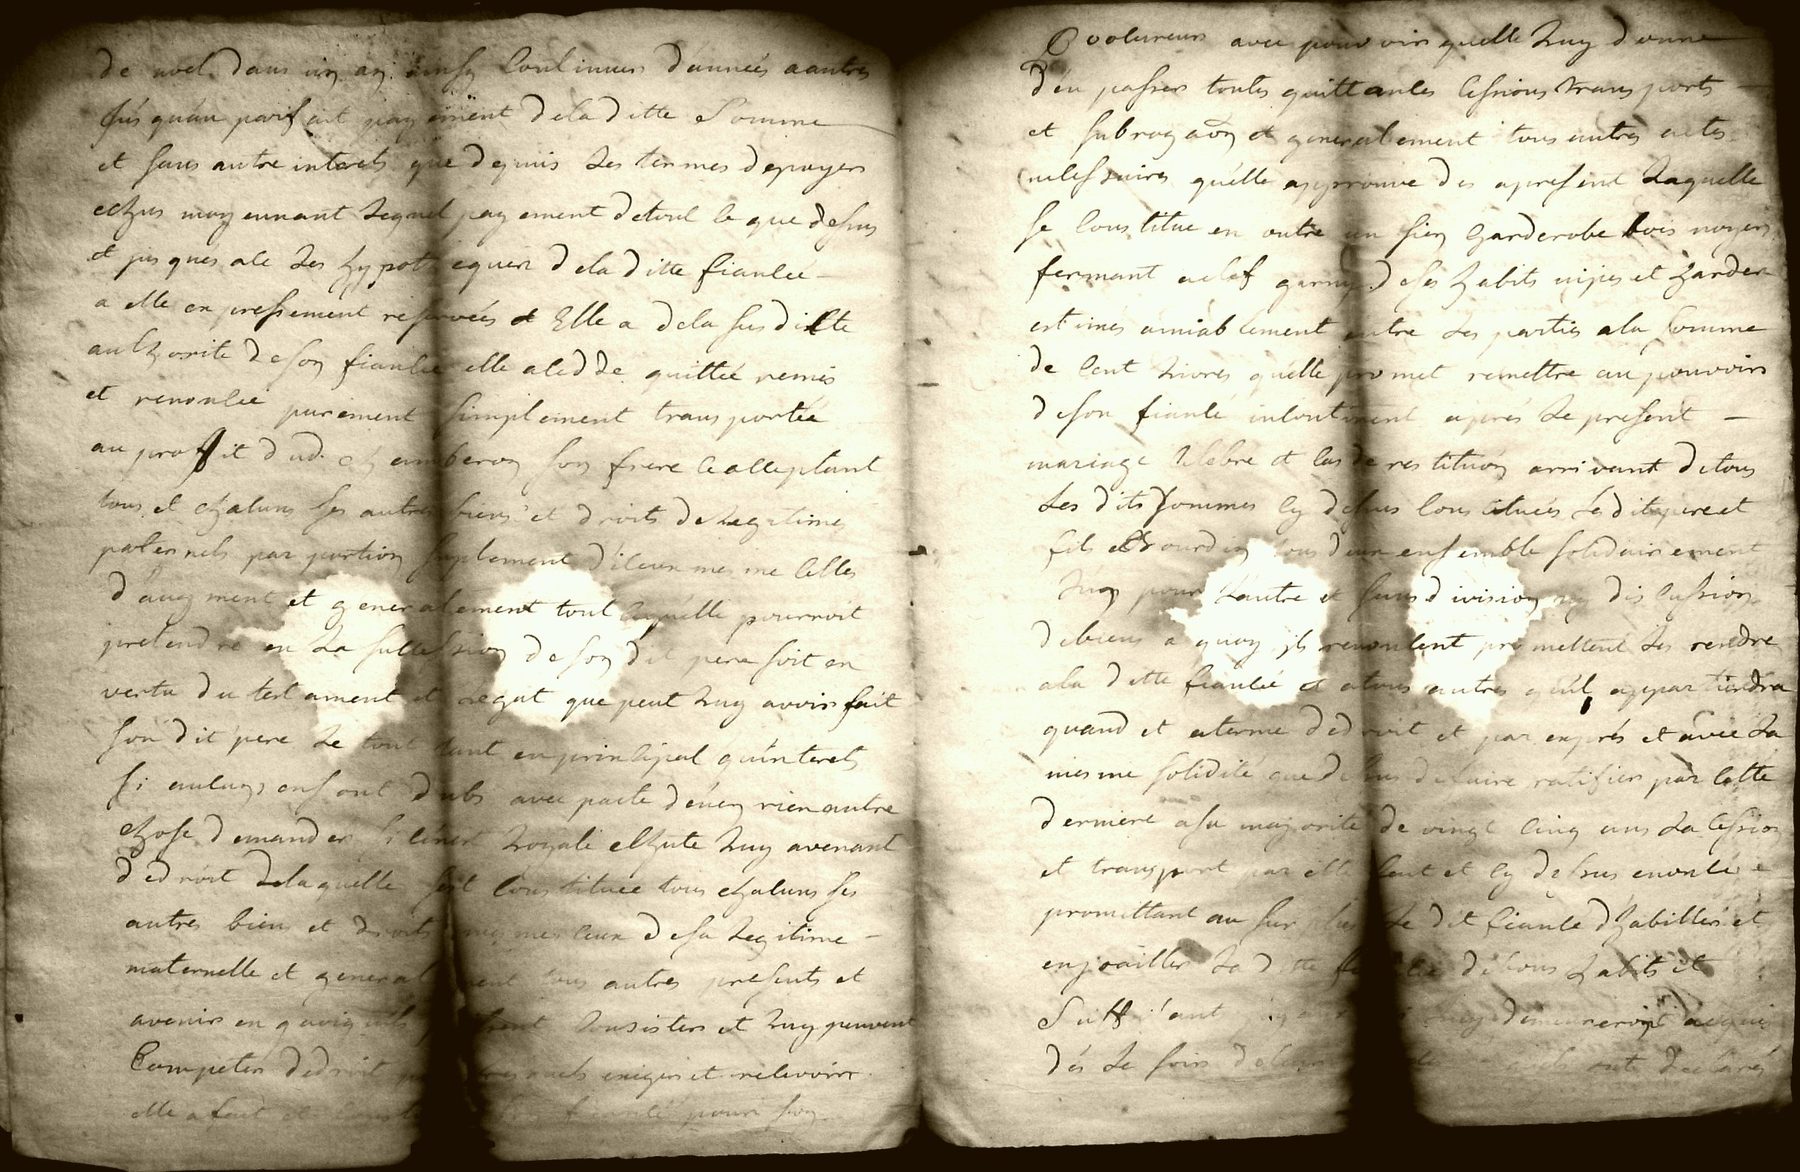 de noel dans un an ainsy continuer d'années a autres
jusqu'au parfait payement dela ditte Somme
et sans autre interets que depuis les termes de payer
echus moyennant lequel payement de tout ce que dessus
et jusques a ce les hypotequer dela ditte fiancée
a elle expressement reservées et Elle a dela susditte
authorité de son fiancé elle a cedde quittée remis
et renoncée purement simplement transportée
au profit dud. chamberon son frere ce acceptant
tous et chacuns ses autres biens et droits de legitime
paternels par portion suplement d'iceux mesme celles
d'augment et generalement tout ce qu'elle pourroit
pretendre en la succession de son dit pere soit en
vertu du testament et legat que peut luy avoir fait
son dit pere le tout tant en principal qu'interets
si aulcuns en sont dubs avec pacte d'en rien autre
chose demander si ce n'est loyale echute luy avenant
de droit de laquelle s'est constituée tous chacuns ses
autres biens et droits mesmes ceux de sa legitime
maternelle et generalement tous autres presents et
avenir en quoy consister et luy peuvent
Competer de droit lesquels exiger et recevoir
elle a fait et fiancé pour son
Procureur avec pouvoir qu'elle luy donne
d'en passer toutes quittances cessions transports
et subrogaon et generalement tous autres actes
necessaires qu'elle approuve des a present laquelle
se constitue en outre un sien garderobe bois noyer
fermant a clef garny de ses habits nipes et hardes
estimés amiablement entre les parties a la somme
de cent livres qu'elle promet remettre au pouvoir
de son fiancé incontinent aprés le present
mariage celebré et cas de restituon arrivant de tous
les dits sommes cy dessus constituées le dit pere et
fils tous deux ensemble solidairement
l'un pour l'autre et sans division ny discussion
de biens a quoy ils renoncent promettent les rendre
a la ditte fiancée et a tous autres qu'il appartiendra
quand et a terme de droit et par exprés et avec la
mesme solidité que dessus de faire ratifier par cette
derniere a sa majorité de vingt cinq ans la cession
et transport par elle fait et cy dessus enoncée
promettant au surplus le dit fiancé d'habiller et
enjoailler lad tte fiancée de bons habits et
Suivant luy demeureront acquis
dés le soir de declarés